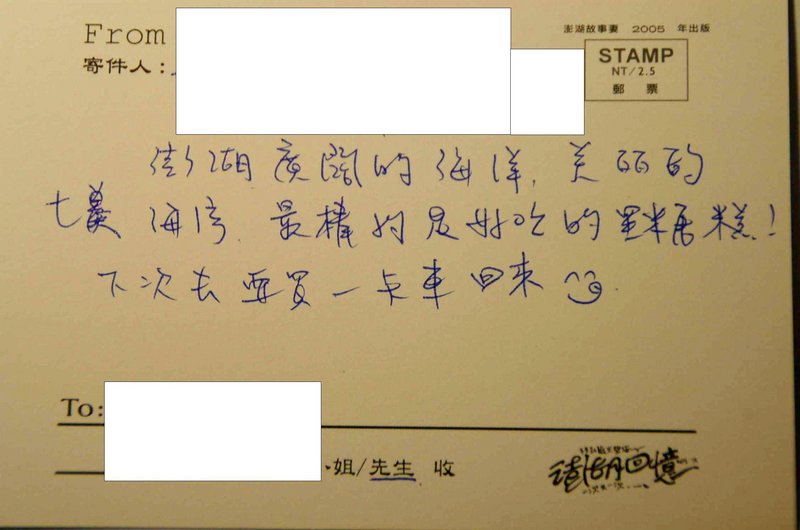 From
澎湖故事妻 2005 年出版
寄件人：
STAMP
NT/2.5
郵 票
澎湖廣闊的海洋，美丽的
七美海湾，最棒的是好吃的黑糖糕！
下次去要買一卡車回來
To:
姐/先生 收
澎湖回憶